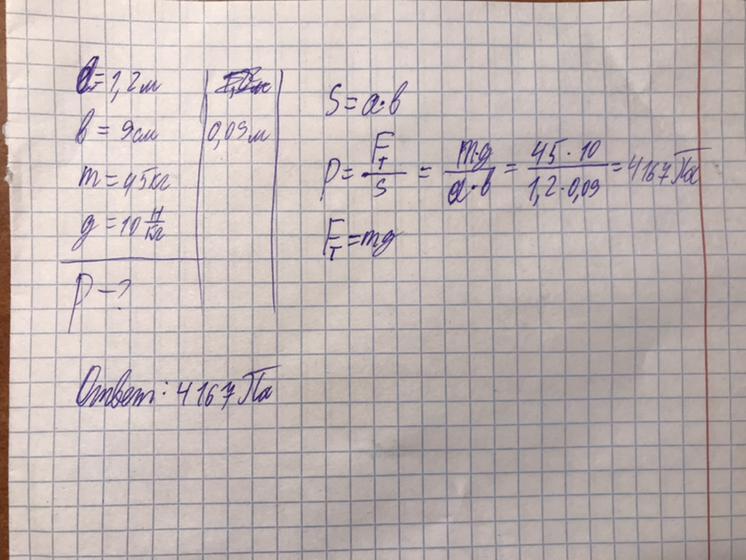 a = 1,2 м
b = 9 см 0,09 м
m = 45 кг
g = 10 Н/кг
P - ?
S = a·b
P = Fт/S = m·g/a·b = 45·10/1,2·0,09 = 4167 Па
Fт = mg
Ответ: 4167 Па